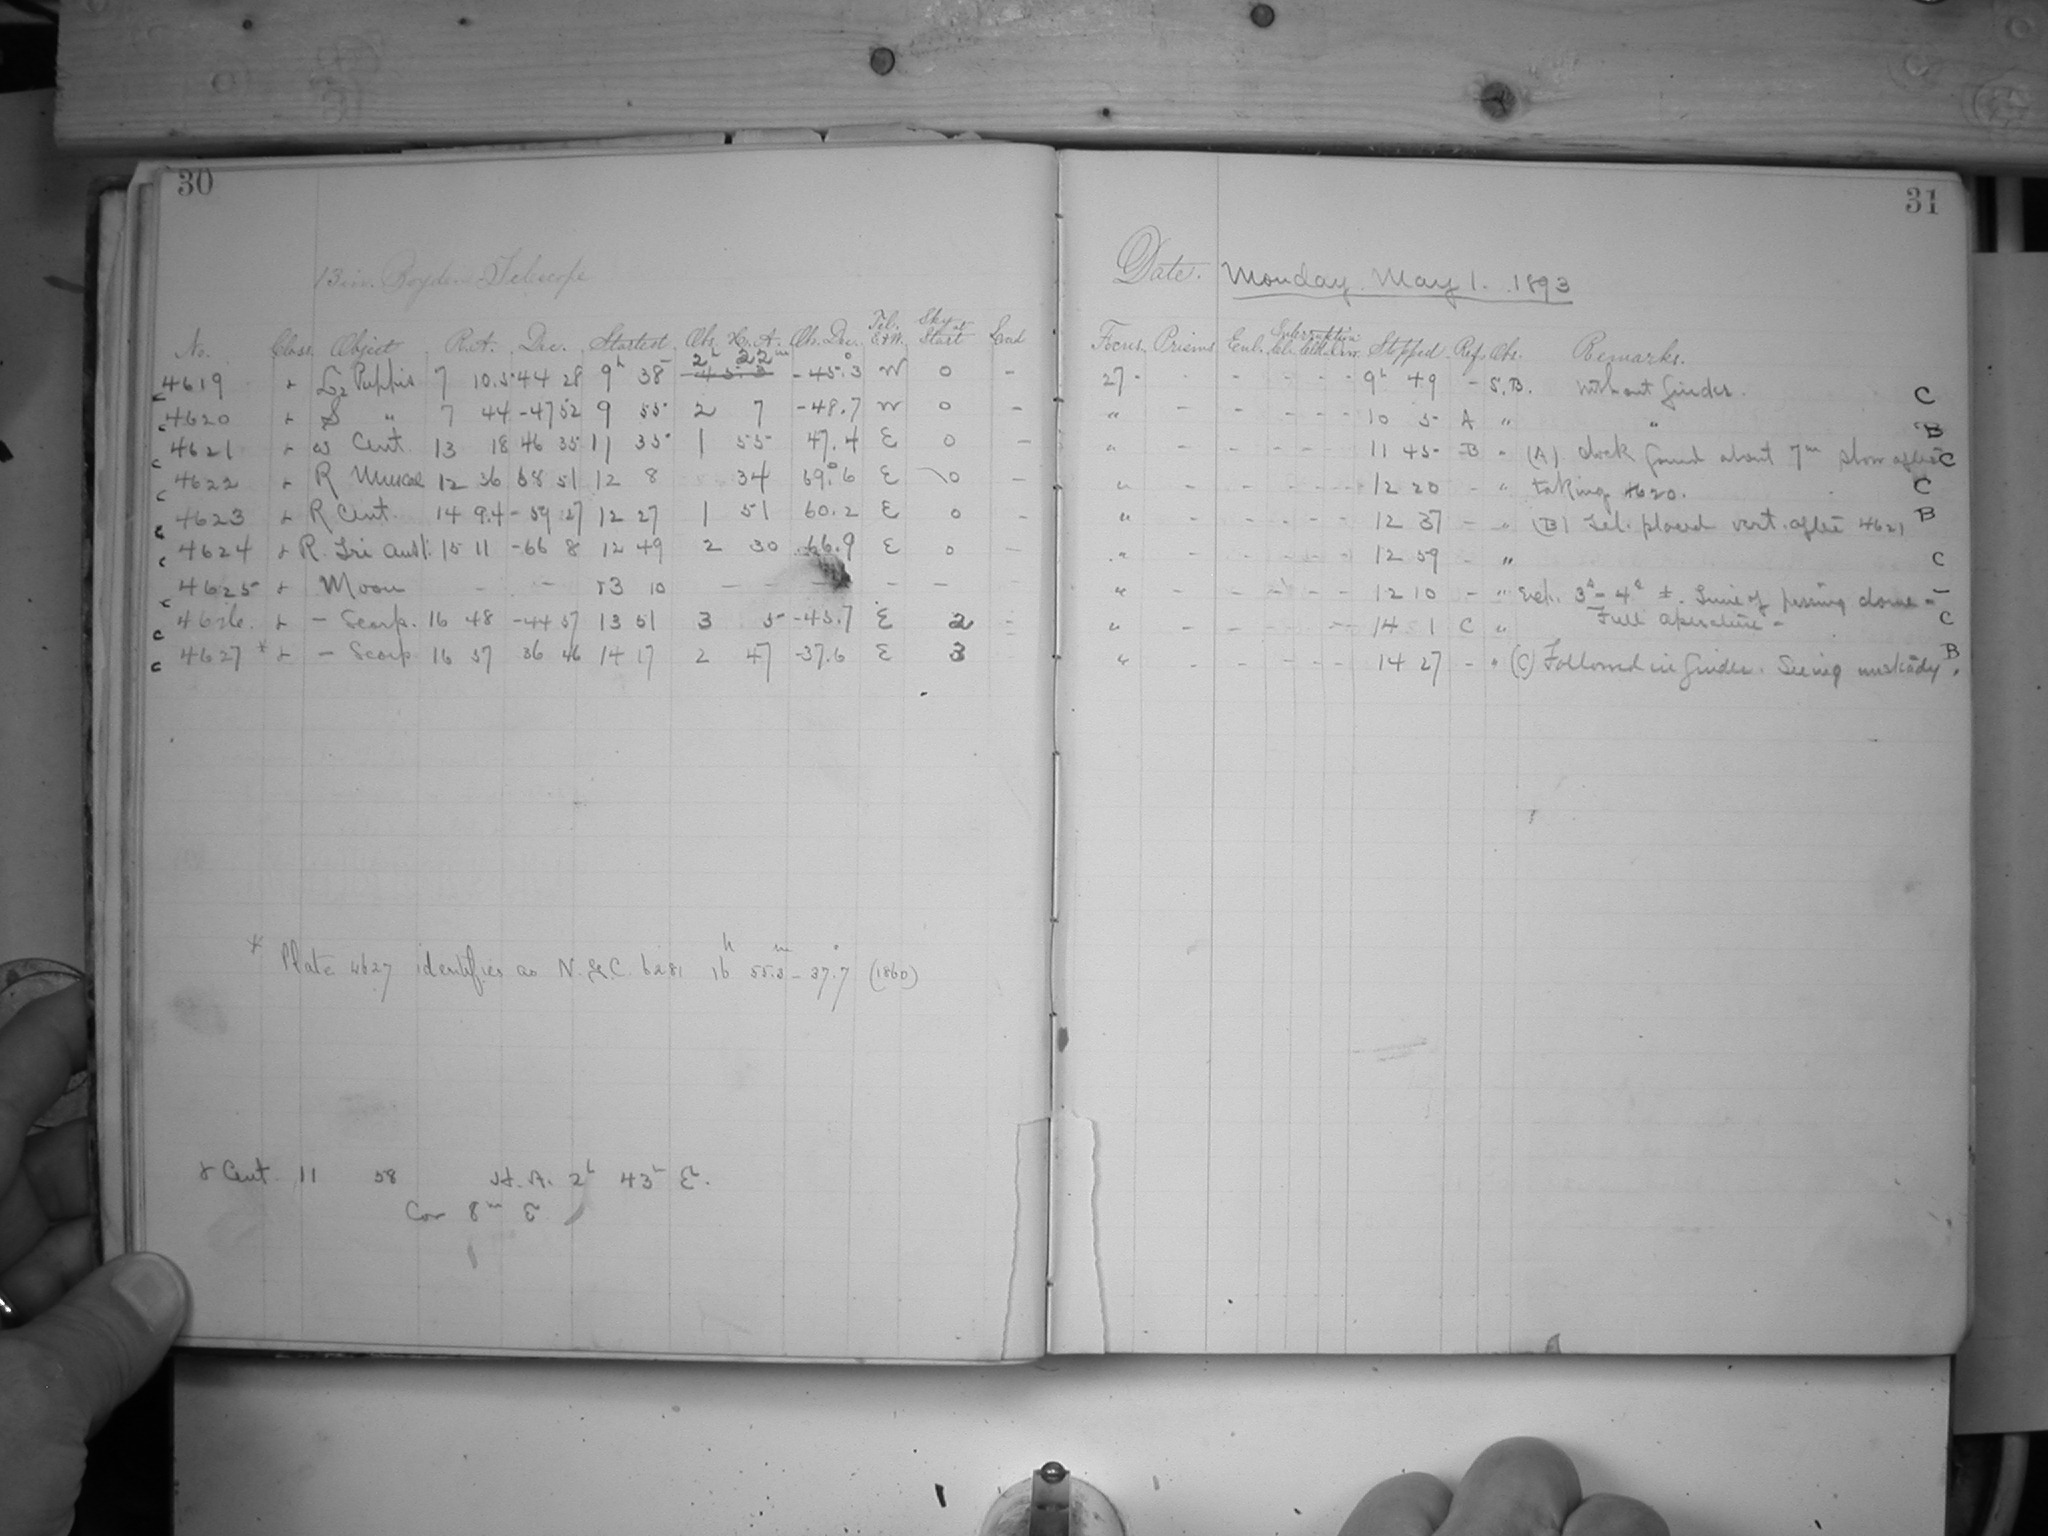 30
13 in. Boyden Telescope
No. Class Object R.A. Dec. Started Obs. H. A. Obs. Dec. Tel. E.+W. Sky at Start End
2h 22m
4619 L2 Puppis 7 10.5 -44 28 9h 38 -45.3 W 0 -
4620 S " 7 44 -47 52 9 55 2 7 -48.7 W 0 -
4621 ω Cent. 13 18 46 35 11 35 1 55 47.4 E 0 -
4622 R Muscae 12 36 68 51 12 8 34 69.6 E 0 -
4623 R Cent. 14 9.4 -59 27 12 27 1 51 60.2 E 0 -
4624 R. Tri Aust. 15 11 -66 8 12 49 2 30 66.9 E 0 -
4625 Moon - - 13 10 - - - - -
4626. - Scorp. 16 48 -44 57 13 51 3 5 -45.7 E 2 -
4627 * - Scorp 16 57 36 46 14 17 2 47 -37.6 E 3
* Plate 4627 identifies as N.G.C. 6281 16h 55.3m - 37.7° (1860)
γ Cent. 11 58 H. A. 2h 43 E.
Cor 8m E
31
Date. Monday. May 1. 1893
Focus Prisms Enl. Interruption Stopped Ref. Obs. Remarks.
27 - - - - - - 9h 49 - S.B. without finder. C
" - - - - - 10 5 A " " B
" - - - - - 11 45 B " (A) clock found about 7m slow after C
" - - - - - 12 20 - " taking 4620. C
" - - - - - 12 37 - " (B) Tel. placed vert. after 4621 B
" - - - - - 12 59 - " C
" - - - - - 12 10 - " 3s - 4s ±. Time of dome -
Full aperture - C
" - - - - - 14 1 C "
" - - - - - 14 27 - " (C) Followed in finder. Seeing unsteady. B